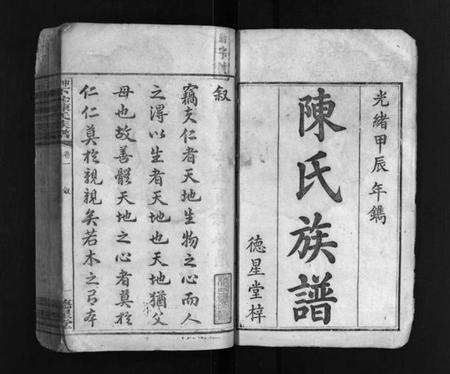 光緒甲辰年鐫
陳氏族譜
德星堂梓
叙
竊夫仁者天地生物之心而人
之得以生者天地也天地猶父
母也故善體天地之心者莫於
仁仁莫於親親矣若木之有本